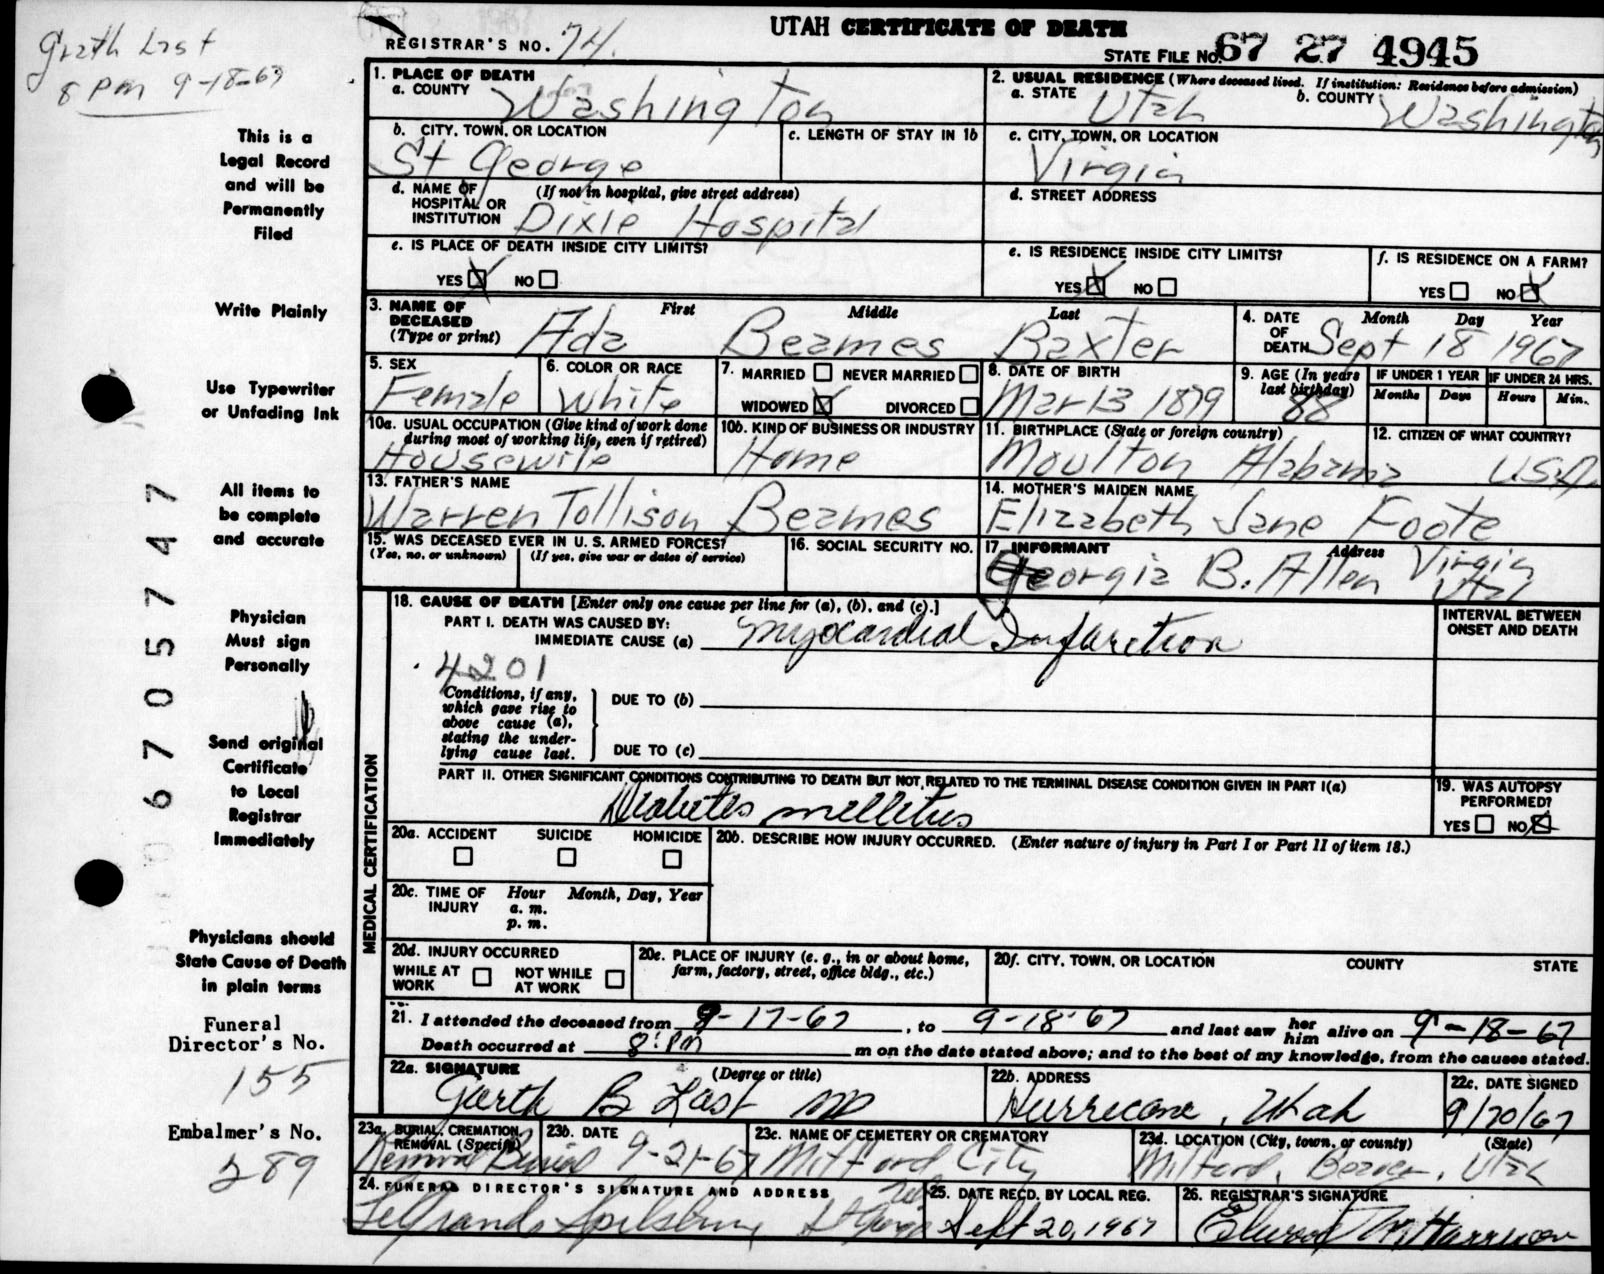 UTAH CERTIFICATE OF DEATH
REGISTRAR'S NO. 74.
STATE FILE NO. 67 27 4945
Last
8 PM 9-18-67
This is a
Legal Record
and will be
Permanently
Filed
Write Plainly
Use Typewriter
or Unfading Ink
All items to
be complete
and accurate
Physician
Must sign
Personally
Send original
Certificate
to Local
Registrar
Immediately
Physicians should
State Cause of Death
in plain terms
Funeral
Director's No.
155
Embalmer's No.
289
6705747
1. PLACE OF DEATH
a. COUNTY Washington
2. USUAL RESIDENCE (Where deceased lived. If institution: Residence before admission)
a. STATE Utah b. COUNTY Washington
b. CITY, TOWN, OR LOCATION
St George
c. LENGTH OF STAY IN 1b
c. CITY, TOWN, OR LOCATION
Virgin
d. NAME OF HOSPITAL OR INSTITUTION (If not in hospital, give street address)
Dixie Hospital
d. STREET ADDRESS
e. IS PLACE OF DEATH INSIDE CITY LIMITS?
YES X NO
e. IS RESIDENCE INSIDE CITY LIMITS?
YES X NO
f. IS RESIDENCE ON A FARM?
YES NO X
3. NAME OF DECEASED (Type or print) First Middle Last
Ada Beames Baxter
4. DATE OF DEATH Month Day Year
Sept 18 1967
5. SEX
Female
6. COLOR OR RACE
White
7. MARRIED NEVER MARRIED
WIDOWED X DIVORCED
8. DATE OF BIRTH
Mar 13 1879
9. AGE (In years last birthday)
88
IF UNDER 1 YEAR
Months Days
IF UNDER 24 HRS.
Hours Min.
10a. USUAL OCCUPATION (Give kind of work done during most of working life, even if retired)
Housewife
10b. KIND OF BUSINESS OR INDUSTRY
Home
11. BIRTHPLACE (State or foreign country)
Moulton Alabama
12. CITIZEN OF WHAT COUNTRY?
U.S.A.
13. FATHER'S NAME
Warren Tollison Beames
14. MOTHER'S MAIDEN NAME
Elizabeth Jane Foote
15. WAS DECEASED EVER IN U. S. ARMED FORCES?
(Yes, no, or unknown) (If yes, give war or dates of service)
16. SOCIAL SECURITY NO.
17. INFORMANT Address
Georgia B. Allen Virgin Utah
MEDICAL CERTIFICATION
18. CAUSE OF DEATH [Enter only one cause per line for (a), (b), and (c).]
PART I. DEATH WAS CAUSED BY:
IMMEDIATE CAUSE (a) Myocardial Infarction
INTERVAL BETWEEN ONSET AND DEATH
4201
Conditions, if any, which gave rise to above cause (a), stating the underlying cause last.
DUE TO (b)
DUE TO (c)
PART II. OTHER SIGNIFICANT CONDITIONS CONTRIBUTING TO DEATH BUT NOT RELATED TO THE TERMINAL DISEASE CONDITION GIVEN IN PART I(a)
Diabetes mellitus
19. WAS AUTOPSY PERFORMED?
YES NO X
20a. ACCIDENT SUICIDE HOMICIDE
20b. DESCRIBE HOW INJURY OCCURRED. (Enter nature of injury in Part I or Part II of item 18.)
20c. TIME OF INJURY Hour Month, Day, Year
a. m.
p. m.
20d. INJURY OCCURRED
WHILE AT WORK NOT WHILE AT WORK
20e. PLACE OF INJURY (e. g., in or about home, farm, factory, street, office bldg., etc.)
20f. CITY, TOWN, OR LOCATION COUNTY STATE
21. I attended the deceased from 9-17-67, to 9-18-67 and last saw her him alive on 9-18-67
Death occurred at 8:PM m on the date stated above; and to the best of my knowledge, from the causes stated.
22a. SIGNATURE (Degree or title)
Garth B Last MD
22b. ADDRESS
Hurricane, Utah
22c. DATE SIGNED
9/20/67
23a. BURIAL, CREMATION, REMOVAL (Specify)
Removal Burial
23b. DATE
9-21-67
23c. NAME OF CEMETERY OR CREMATORY
Milford City
23d. LOCATION (City, town, or county) (State)
Milford, Beaver, Utah
24. FUNERAL DIRECTOR'S SIGNATURE AND ADDRESS
Spilsbury St George
25. DATE RECD. BY LOCAL REG.
Sept 20, 1967
26. REGISTRAR'S SIGNATURE
Elwood Harrison